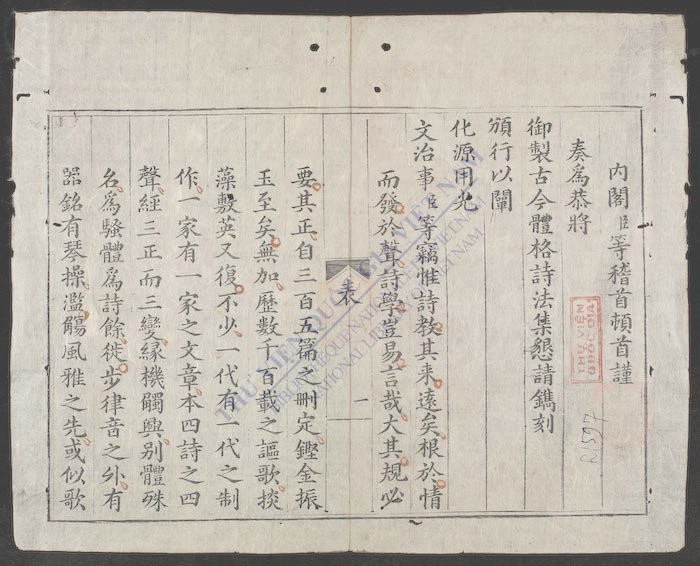 內閣臣等稽首頓首謹
奏為恭將
御製古今體格詩法集懇請鐫刻
頒行以闡
化源用光
文治事臣等竊惟詩教其来遠矣根於情
而發於聲詩學豈易言哉大其規必
表
一
要其正自三百五篇之刪定鏗金振
玉至矣無加歷數千百載之謳歌掞
藻敷英又復不少一代有一代之制
作一家有一家之文章本四詩之四
聲經三正而三變緣機觸興別體殊
名為騷體為詩餘徙步律音之外有
器銘有琴操濫觴風雅之先或似歌
THƯ VIỆN
QUOCGIA
R.1597
THƯ VIỆN QUỐC GIA VIỆT NAM
BIBLIOTHEQUE NATIONALE DU VIETNAM
NATIONAL LIBRARY OF VIETNAM